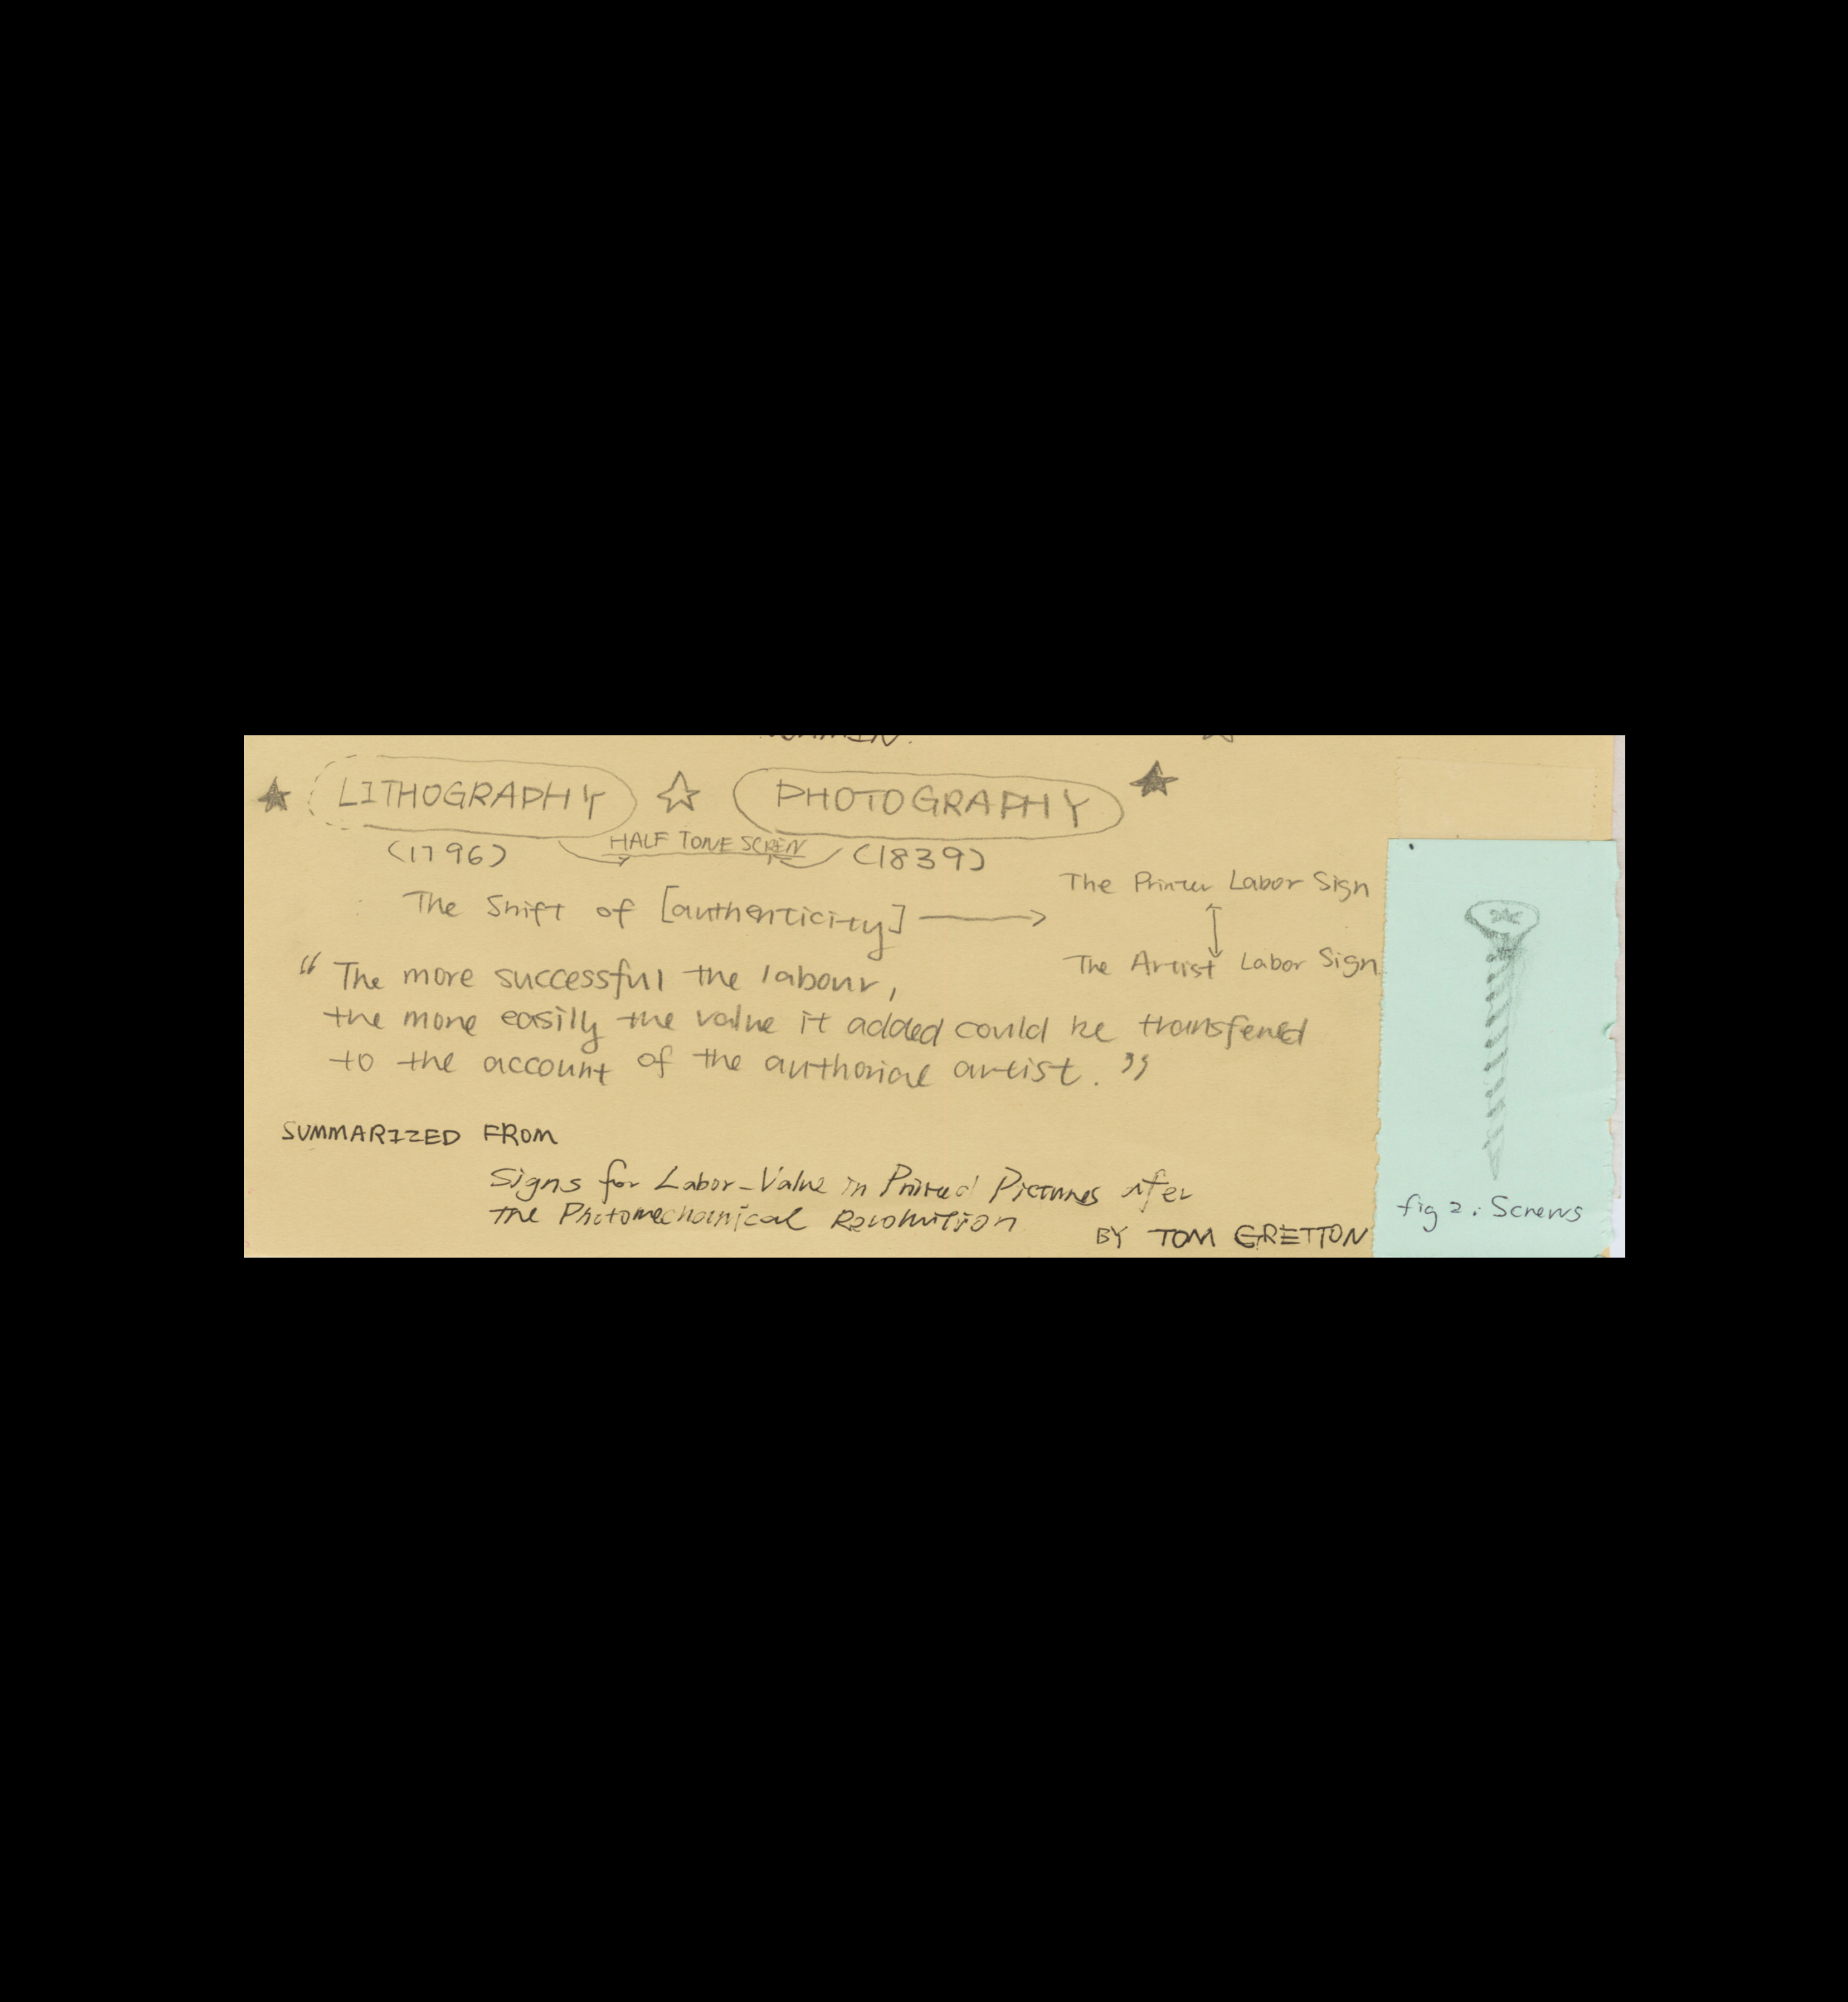 LITHOGRAPHY PHOTOGRAPHY
HALF TONE SCREN
(1796) (1839)
The Printer Labor Sign
The Shift of [authenticity]
The Artist Labor Sign
“The more successful the labour,
the more easily the value it added could be transfered
to the account of the authorial artist.”
SUMMARIZED FROM
Signs for Labor-Value in Printed Pictures after
the Photomechanical Revolution
BY TOM GRETTON
fig 2: Screws